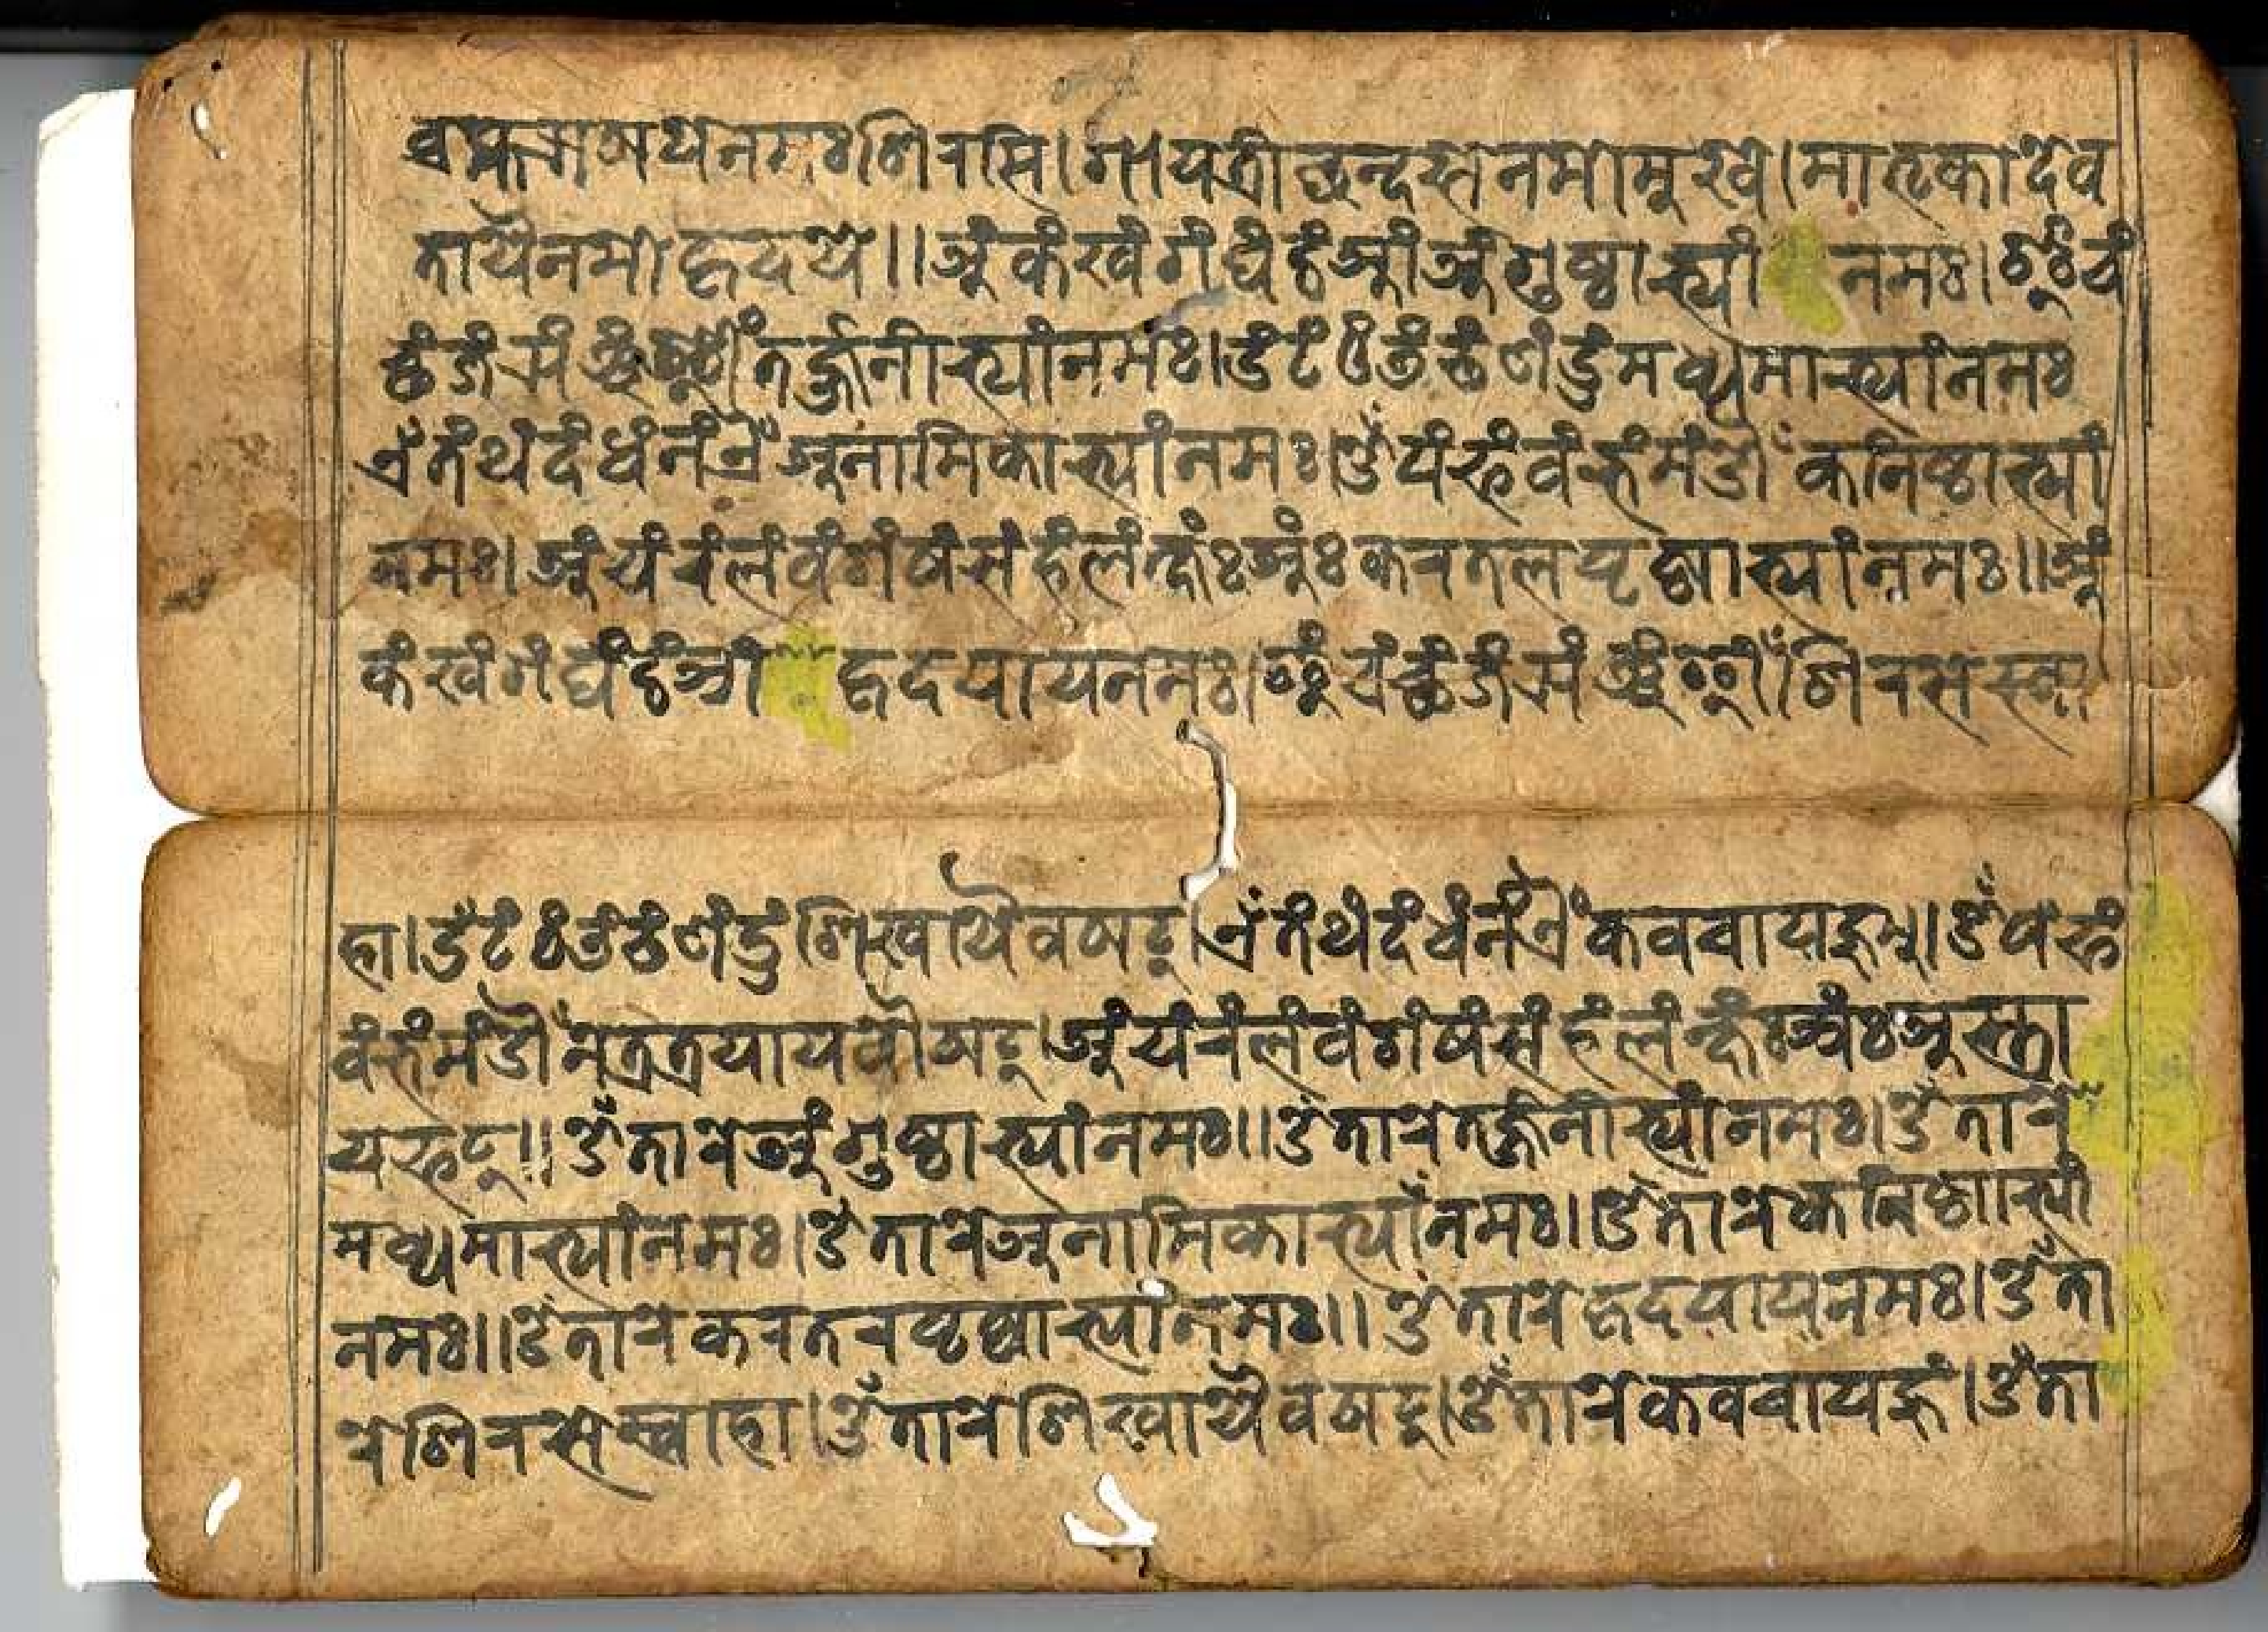 ब्रह्मऋषयेनमःशिरसि।गायत्रीछन्दसेनमोमुखे।मातृकादेव
तायैनमोहृदये॥अंकंखंगंघंङंआंअंगुष्ठाभ्यां नमः।इंचं
छंजंझंञंईंतर्ज्जनीभ्यांनमः।उंटंठंडंढंणंउंमध्यमाभ्यांनमः
एंतंथंदंधंनंऐंअनामिकाभ्यांनमः।ओंपंफंबंभंमंओंकनिष्ठाभ्यां
नमः।अंयंरंलंवंशंषंसंहंलंक्षंःअंःकरतलपृष्ठाभ्यांनमः॥अं
कंखंगंघंङंआं हृदयायनमः।इंचंछंजंझंञंईंशिरसेस्वा
हा।उंटंठंडंढंणंउंशिखायैवषट्।एंतंथंदंधंनंऐंकवचायहूम्।ओंपंफं
बंभंमंओंनेत्रत्रयायवौषट्।अंयंरंलंवंशंषंसंहंलंक्षंःअंःअस्त्रा
यफट्॥ॐतारेअंगुष्ठाभ्यांनमः॥ॐतारेतर्ज्जनीभ्यांनमः।ॐतारे
मध्यमाभ्यांनमः।ॐतारेअनामिकाभ्यांनमः।ॐतारेकनिष्ठाभ्यां
नमः॥ॐतारेकरतरपृष्ठाभ्यांनमः॥ॐतारेहृदयायनमः।ॐता
रेशिरसेस्वाहा।ॐतारेशिखायैवषट्।ॐतारेकवचायहूं।ॐता